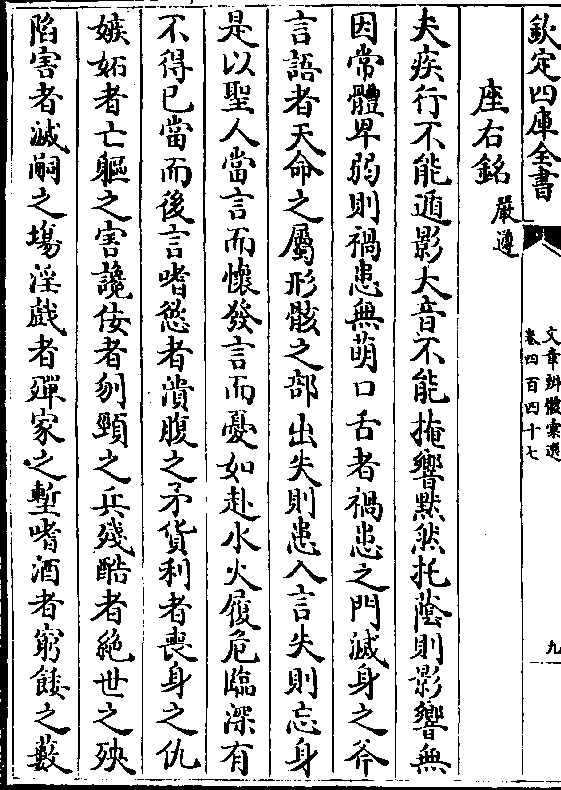 欽定四庫全書
文章辨體彙選
卷四百四十七
九
座右銘
嚴遵
夫疾行不能遁影大音不能掩響默然托蔭則影響無
因常體卑弱則禍患無萌口舌者禍患之門滅身之斧
言語者天命之屬形骸之部出失則患入言失則忘身
是以聖人當言而懷發言而憂如赴水火履危臨深有
不得已當而後言嗜慾者潰腹之矛貨利者喪身之仇
嫉妬者亡軀之害讒佞者刎頸之兵殘酷者絶世之殃
陷害者滅嗣之塲淫戯者殫家之塹嗜酒者窮餒之藪